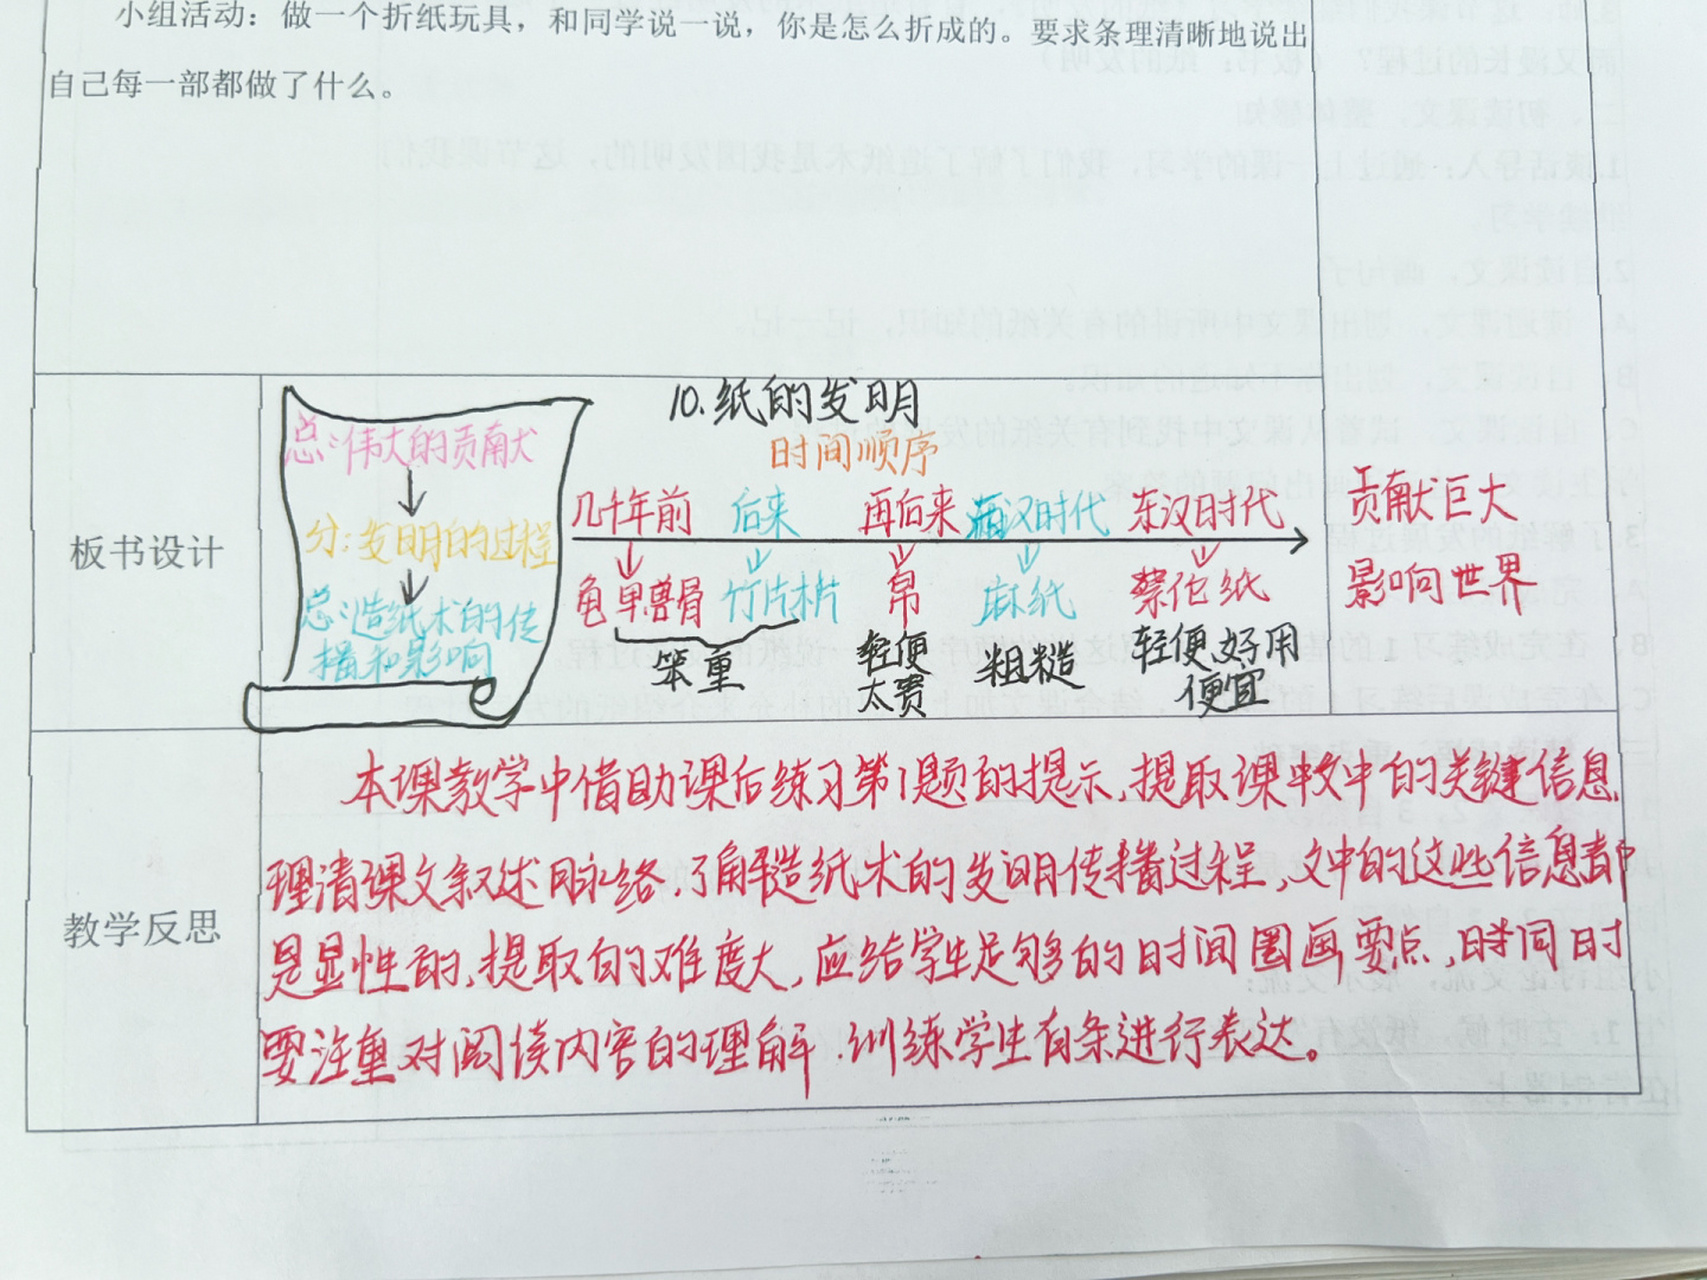 小组活动：做一个折纸玩具，和同学说一说，你是怎么折成的。要求条理清晰地说出
自己每一部都做了什么。
板书设计
10.纸的发明
时间顺序
总：伟大的贡献
分：发明的过程
总：造纸术的传
播和影响
几千年前 后来 再后来 西汉时代 东汉时代
龟甲兽骨 竹片木片 帛 麻纸 蔡伦纸
笨重 轻便 太贵 粗糙 轻便，好用 便宜
贡献巨大
影响世界
教学反思
本课教学中借助课后练习第1题的提示，提取课文中的关键信息，
理清课文叙述脉络，了解造纸术的发明传播过程，文中的这些信息都
是显性的，提取的难度大，应给学生足够的时间圈画要点，同时
要注重对阅读内容的理解，训练学生有条进行表达。